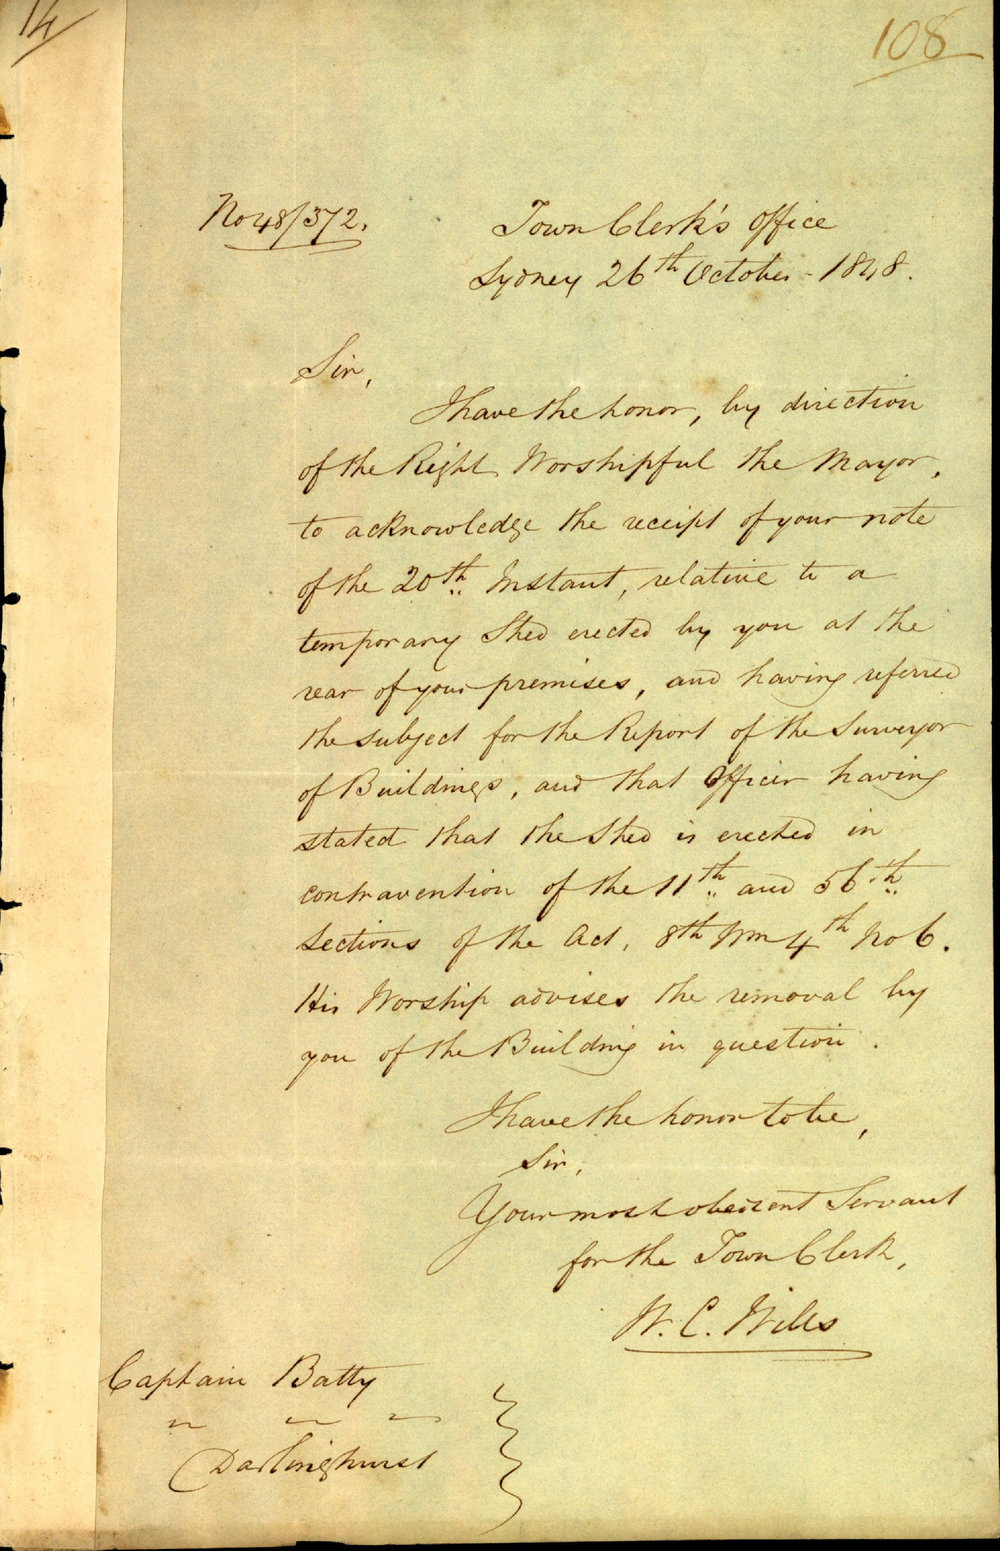 14
108
No 48/372.
Town Clerk's Office
Sydney 26th October - 1848.
Sir,
I have the honor, by direction
of the Right Worshipful the Mayor,
to acknowledge the receipt of your note
of the 20th Instant, relative to a
temporary Shed erected by you at the
rear of your premises, and having referred
the subject for the Report of the Surveyor
of Buildings, and that Officer having
stated that the Shed is erected in
contravention of the 11th and 56th
Sections of the Act, 8th Wm 4th No 6.
His Worship advises the removal by
you of the Building in question.
I have the honor to be,
Sir,
Your most obedient Servant
for the Town Clerk,
W. C. Wills
Captain Batty
" " "
Darlinghurst